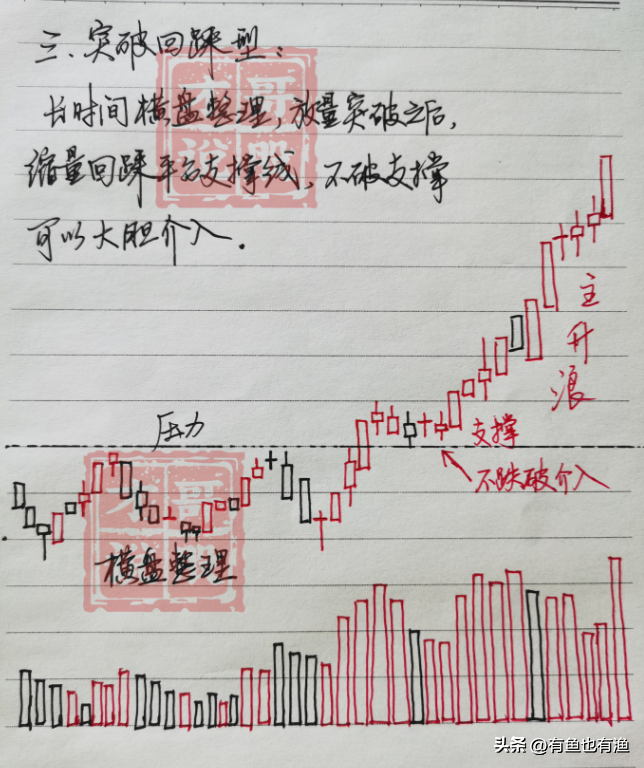 三、突破回踩型:
长时间横盘整理,放量突破之后,
缩量回踩平台支撑线,不破支撑
可以大胆介入.
主升浪
压力
支撑
不跌破介入
横盘整理
头条 @有鱼也有渔